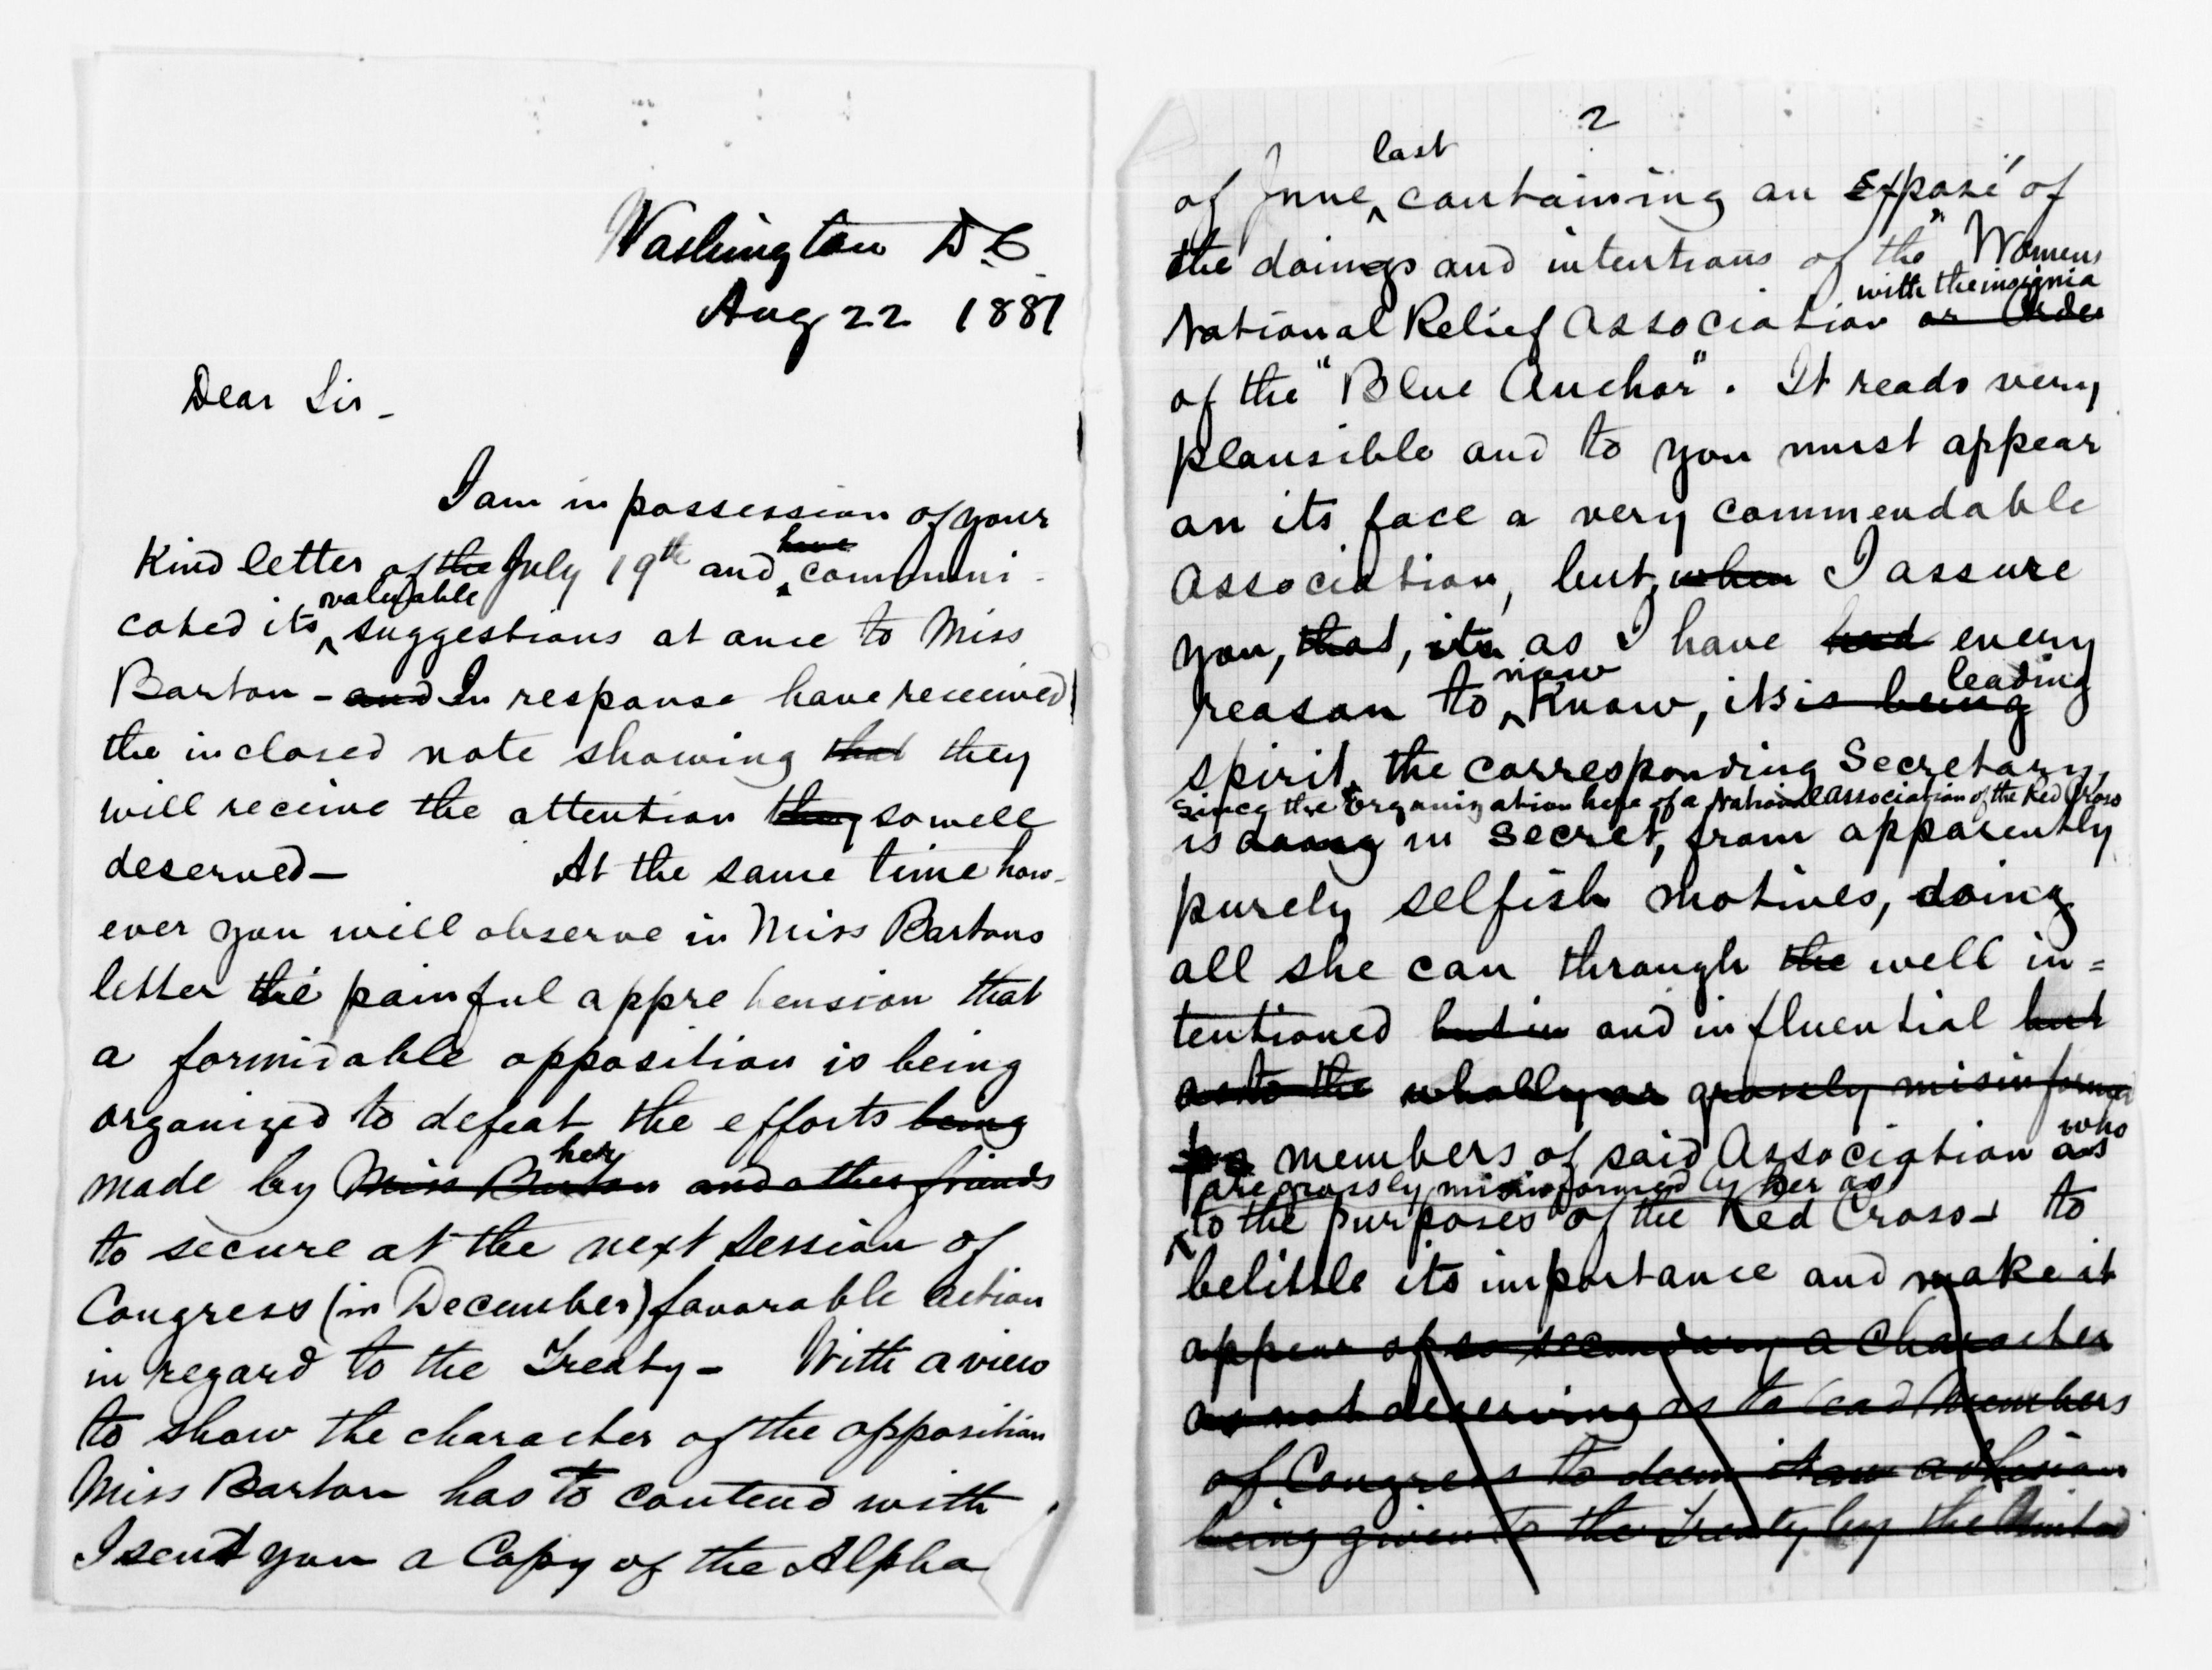 Washington D.C.
Aug 22 1881
Dear Sir -
I am in possession of your
Kind letter of the July 19th and have communi-
cated its valuable suggestions at once to Miss
Barton - and In response have received
the inclosed note showing that they
will receive the attention they so well
deserved - At the same time how-
ever you will observe in Miss Bartons
letter the painful apprehension that
a formidable opposition is being
organized to defeat the efforts being
made by Miss Barton her and other friends
to secure at the next session of
Congress (in December) favorable action
in regard to the Treaty - With a view
to show the character of the opposition
Miss Barton has to contend with
I sent you a Copy of the Alpha
2
of June last containing an Exposé of
the doings and intentions of the "Womens
National Relief Association or Order with the insignia
of the "Blue Anchor". It reads very
plausible and to you must appear
on its face a very commendable
Association, but when I assure
you, that, its as I have had every
reason to now Know, its is being leading
spirit, the corresponding Secretary,
since the organization here of a National Association of the Red Cross
is doing in secret, from apparently
purely selfish motives, doing
all she can through the well in=
tentioned but in and influential but
as to the wholly or grossly misinformed
members of said Association as who
are grossly misinformed by her as
to the purposes of the Red Cross to
belittle its importance and make it
appear of so secondary a Character
as not deserving as to lead Members
of Congress to deem it an adhesion
being given to the Treaty by the United